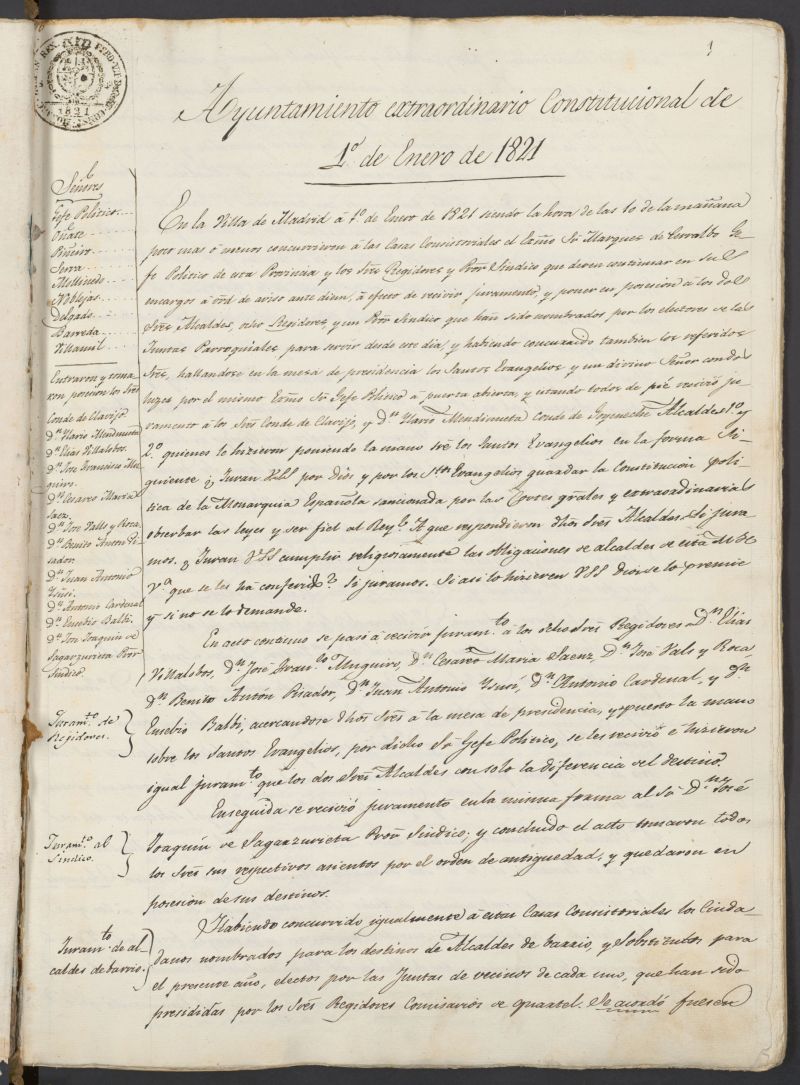 1
Ayuntamiento extraordinario Constitucional de
1.º de Enero de 1821
Señores
Gefe Politico
Oñate
Piñeiro
Serra
Mollinedo
Noblejas
Delgado
Barreda
Villamil
Entraron y toma-
ron posesion los Sres
Conde de Clavijo
Dn. Ylario Mendinueta
Dn. Elias Villalobos
Dn. Jose Francisco Mu-
guiro
Dn. Cesareo Maria
Saez.
Dn. Jose Valls y Roca
Dn. Benito Anton Pi-
sador
Dn. Juan Antonio
Dn. Antonio Cardenal
Dn. Eusebio Balbi
Dn. Jose Joaquin de
Sagarzurieta Pror
Sindico
En la Villa de Madrid á 1.º de Enero de 1821 siendo la hora de las 10 de la mañana
poco mas ó menos concurrieron á las Casas Consistoriales el Exmo Sr Marques de Cerralbo Ge-
fe Politico de esta Provincia y los Sres Regidores y Pror Sindico que deven continuar en sus
encargos á de aviso ante diem, á efecto de recivir juramento, y poner en posesion á los dos
Sres Alcaldes, ocho Regidores, y un Pror Sindico que han sido nombrados por los electores de las
Juntas Parroquiales para servir desde este dia, y habiendo concurrido tambien los referidos
Sres, hallandose en la mesa de presidencia los Santos Evangelios y un divino Señor con dos
luzes por el mismo Exmo Sr Gefe Politico á puerta abierta, y estando todos de pié recivió ju-
ramento á los Sres Conde de Clavijo, y Dn. Ylario Mendinueta Conde de Goyeneche Alcaldes 1.º y
2.º quienes lo hizieron poniendo la mano sre los Santos Evangelios en la forma si-
guiente ¿Juran VSS por Dios y por los Stos Evangelios guardar la Constitución poli-
tica de la Monarquia Española sancionada por las Cortes grales y extraordinarias
obserbar las leyes y ser fiel al Rey? A que respondieron dhos Sres Alcaldes. Si jura-
mos. ¿Juran VSS cumplir religiosamente las obligaciones de alcaldes de esta M. H.
Va que se les há conferido? Si juramos. Si asi lo hizieren VSS Dios se lo premie
y si no se lo demande.
En acto continuo se pasó á recivir juramto á los ocho Sres Regidores Dn. Elias
Villalobos, Dn. José Franco Muguiro, Dn. Cesareo Maria Saenz, Dn. José Vals y Roca
Dn. Benito Antón Pisador, Dn. Juan Antonio Dn. Antonio Cardenal, y Dn.
Juramto de
Regidores.
Eusebio Balbi, acercandose dhos Sres á la mesa de presidencia, y puesto la mano
sobre los Santos Evangelios, por dicho Sr Gefe Politico, se les recivió é hizieron
igual juramto que los dos Sres Alcaldes con solo la diferencia del destino.
Enseguida se recivió juramento en la misma forma al Sr Dn. José
Juramto al
Sindico.
Joaquín de Sagarzurieta Pror Sindico; y concluido el acto tomaron todos
los Sres sus respectivos asientos por el orden de antigüedad, y quedaron en
posesion de sus destinos.
Habiendo concurrido igualmente á estas Casas Consistoriales los Ciuda-
Juramto de al-
caldes de barrio.
danos nombrados para los destinos de Alcaldes de barrio, y Sobstitutos para
el presente año, electos por las Juntas de vecinos de cada uno, que han sido
presididas por los Sres Regidores Comisarios de quartel. Se acordó fuesen